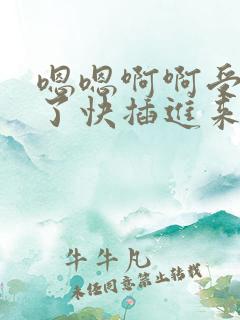 嗯嗯啊啊受
了快插进来
牛牛凡
未经同意禁止转载